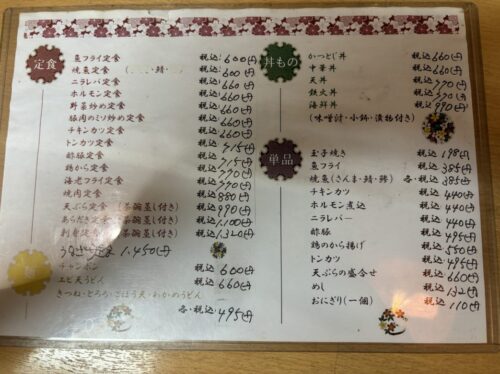 定食
魚フライ定食 税込 600円
焼魚定食 税込 600円
ニラレバ定食 税込 660円
ホルモン定食 税込 660円
野菜炒め定食 税込 660円
豚肉のミソ炒め定食 税込 660円
チキンカツ定食 税込 660円
トンカツ定食 税込 715円
酢豚定食 税込 715円
鶏から定食 税込 770円
海老フライ定食 税込 770円
焼肉定食 税込 880円
天ぷら定食(茶碗蒸し付き) 税込 990円
あらだき定食(茶碗蒸し付き) 税込 1,100円
刺身定食(茶碗蒸し付き) 税込 1,320円
1,450円
チャンポン 税込 600円
エビ天うどん 税込 660円
きつね・とろろ・ごぼう天・わかめうどん
各・税込 495円
丼もの
かつとじ丼 税込 660円
中華丼 税込 660円
天丼 税込 770円
鉄火丼 税込 990円
海鮮丼 税込 990円
(味噌汁・小鉢・漬物付き)
単品
玉子焼き 税込 198円
魚フライ 税込 385円
焼魚(さんま・鯖・鯵) 各・税込 385円
チキンカツ 税込 440円
ホルモン煮込 税込 440円
ニラレバー 税込 440円
酢豚 税込 495円
鶏のから揚げ 税込 550円
トンカツ 税込 495円
天ぷらの盛合せ 税込 660円
めし 税込 132円
おにぎり(一個) 税込 110円